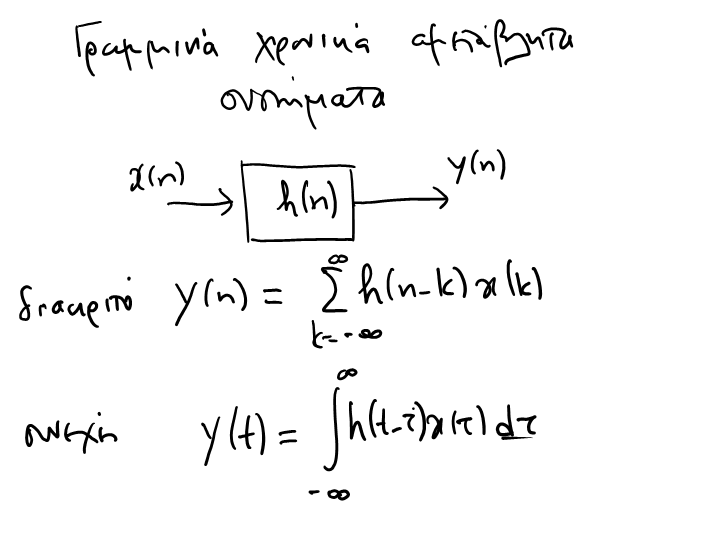 Γραμμικά χρονικά αμετάβλητα
συστήματα
x(n)
h(n)
y(n)
διακριτό y(n) = ∑_{k=-∞}^{∞} h(n-k) x(k)
συνεχή y(t) = ∫_{-∞}^{∞} h(t-τ) x(τ) dτ